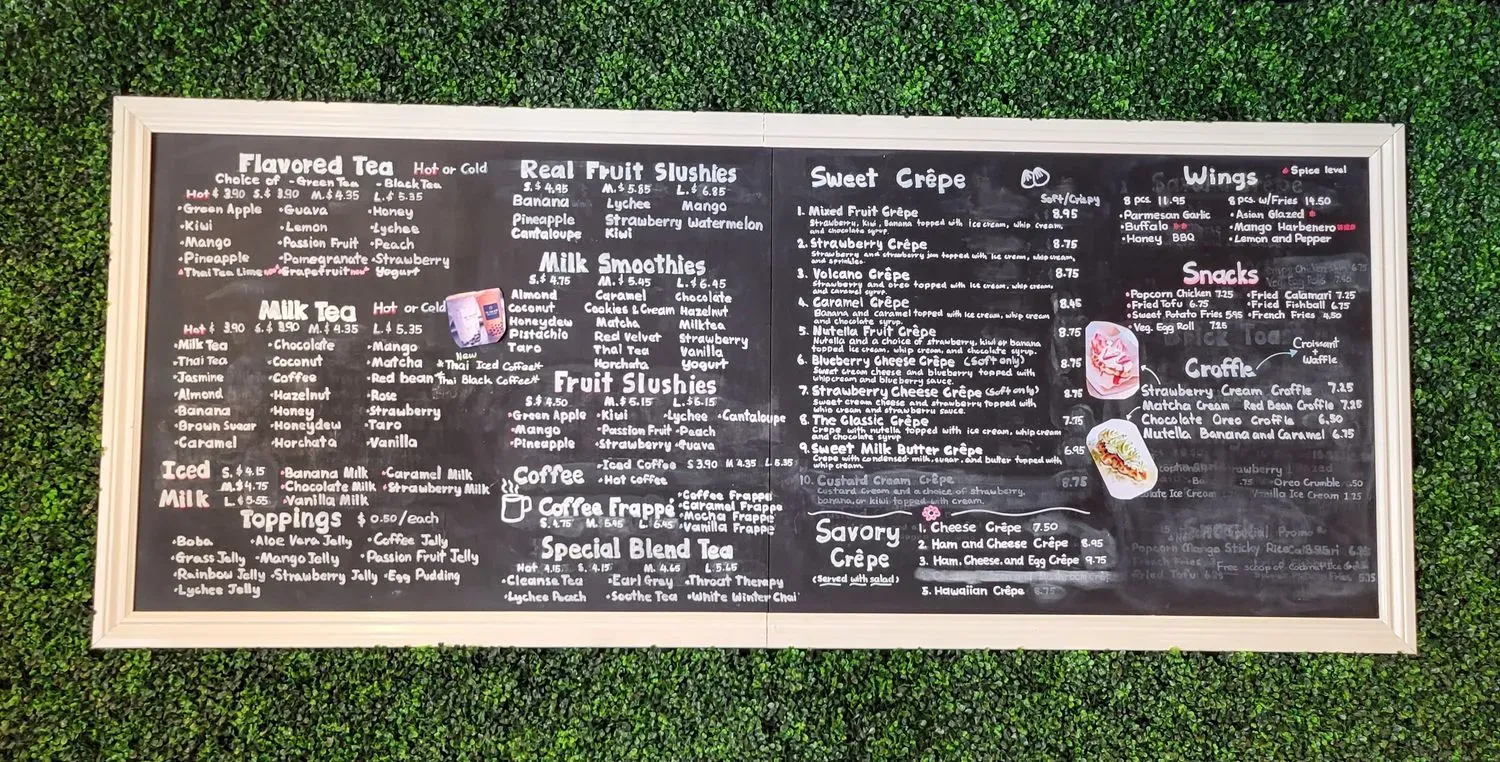 Flavored Tea Hot or Cold
Choice of - Green Tea - Black Tea
Hot $ 3.90 S.$ 3.90 M.$ 4.35 L.$ 5.35
•Green Apple •Guava •Honey
•Kiwi •Lemon •Lychee
•Mango •Passion Fruit •Peach
•Pineapple •Pomegranate •Strawberry
Thai Tea Lime new •Grapefruit new Yogurt
Milk Tea Hot or Cold
Hot $ 3.90 S.$ 3.90 M.$ 4.35 L.$ 5.35
•Milk Tea •Chocolate •Mango
•Thai Tea •Coconut •Matcha
•Jasmine •Coffee •Red bean
•Almond •Hazelnut •Rose
•Banana •Honey •Strawberry
•Brown Sugar •Honeydew •Taro
•Caramel •Horchata •Vanilla
New
*Thai Iced Coffee*
*Thai Black Coffee*
Iced Milk
S. $ 4.15 •Banana Milk •Caramel Milk
M. $ 4.75 •Chocolate Milk •Strawberry Milk
L. $ 5.55 •Vanilla Milk
Toppings $ 0.50/each
•Boba •Aloe Vera Jelly •Coffee Jelly
•Grass Jelly •Mango Jelly •Passion Fruit Jelly
•Rainbow Jelly •Strawberry Jelly •Egg Pudding
•Lychee Jelly
Real Fruit Slushies
S.$ 4.95 M.$ 5.85 L.$ 6.85
Banana Lychee Mango
Pineapple Strawberry Watermelon
Cantaloupe Kiwi
Milk Smoothies
S.$ 4.75 M.$ 5.45 L.$ 6.45
Almond Caramel Chocolate
Coconut Cookies & Cream Hazelnut
Honeydew Matcha Milktea
Pistachio Red Velvet Strawberry
Taro Thai Tea Vanilla
Horchata Yogurt
Fruit Slushies
S.$ 4.50 M.$ 5.15 L.$6.15
•Green Apple •Kiwi •Lychee •Cantaloupe
•Mango •Passion Fruit •Peach
•Pineapple •Strawberry •Guava
Coffee
•Iced Coffee S 3.90 M 4.35 L 5.35
•Hot Coffee
Coffee Frappé
S. 4.75 M. 5.45 L. 6.45
•Coffee Frappé
•Caramel Frappe
•Mocha Frappe
•Vanilla Frappe
Special Blend Tea
Hot 4.15 S. 4.15 M. 4.65 L. 5.65
•Cleanse Tea •Earl Grey •Throat Therapy
•Lychee Peach •Soothe Tea •White Winter Chai
Sweet Crêpe
Soft/Crispy
1. Mixed Fruit Crêpe 8.95
Strawberry, Kiwi, Banana topped with ice cream, whip cream,
and chocolate syrup.
2. Strawberry Crêpe 8.75
Strawberry and strawberry jam topped with ice cream, whip cream,
and sprinkles.
3. Volcano Crêpe 8.75
Strawberry and oreo topped with ice cream, whip cream,
and caramel syrup.
4. Caramel Crêpe 8.45
Banana and caramel topped with ice cream, whip cream
and chocolate syrup.
5. Nutella Fruit Crêpe 8.75
Nutella and a choice of strawberry, kiwi or banana
topped ice cream, whip cream, and chocolate syrup.
6. Blueberry Cheese Crêpe (Soft only) 8.75
Sweet cream cheese and blueberry topped with
whip cream and blueberry sauce.
7. Strawberry Cheese Crêpe (Soft only) 8.75
Sweet cream cheese and strawberry topped with
whip cream and strawberry sauce.
8. The Classic Crêpe 7.75
Crêpe with nutella topped with ice cream, whip cream
and chocolate syrup
9. Sweet Milk Butter Crêpe 6.95
Crêpe with condensed milk, sugar, and butter topped with
whip cream.
10. Custard Cream Crêpe 8.75
Custard cream and a choice of strawberry,
banana, or kiwi topped with cream.
Savory Crêpe
(Served with salad)
1. Cheese Crêpe 7.50
2. Ham and Cheese Crêpe 8.95
3. Ham, Cheese, and Egg Crêpe 9.75
5. Hawaiian Crêpe 8.75
Wings Spice level
8 pcs. 11.95 8 pcs. w/Fries 14.50
•Parmesan Garlic •Asian Glazed
•Buffalo •Mango Harbenero
•Honey BBQ •Lemon and Pepper
Snacks
•Popcorn Chicken 7.25 •Fried Calamari 7.25
•Fried Tofu 6.75 •Fried Fishball 6.75
•Sweet Potato Fries 5.95 •French Fries 4.50
•Veg. Egg Roll 7.25
Croissant + Waffle
Croffle
Strawberry Cream Croffle 7.25
Matcha Cream Red Bean Croffle 7.25
Chocolate Oreo Croffle 6.50
Nutella Banana and Caramel 6.75
Oreo Crumble .50
Vanilla Ice Cream 1.25
Popcorn Mango Sticky Rice